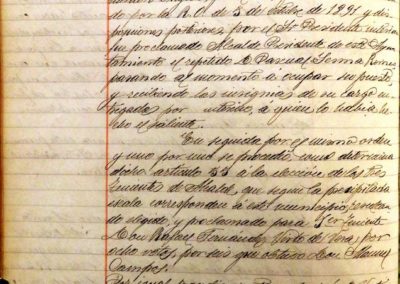 do por la R. O. de 5 de Octubre de 1891 y dis
posiciones posteriores, por el Sr Presidente interino
fue proclamado Alcalde Presidente de este Ayun
tamiento el repetido D Pascual Serna
pasando al momento a ocupar su puesto
y recibiendo las insignias de su cargo
por interino, á quien lo habia
hecho el saliente.
En seguida por el mismo orden
y uno por uno se procedió como determina
dicho articulo 55 á la elección de los tres
Tenientes de Alcalde que segun la precipitada
escala corresponden á este municipio,
do elegido y proclamado para 1er Teniente
Don Rafael Fernandez de Vera, por
ocho votos, por seis que obtuvo Don Manuel
Campos.